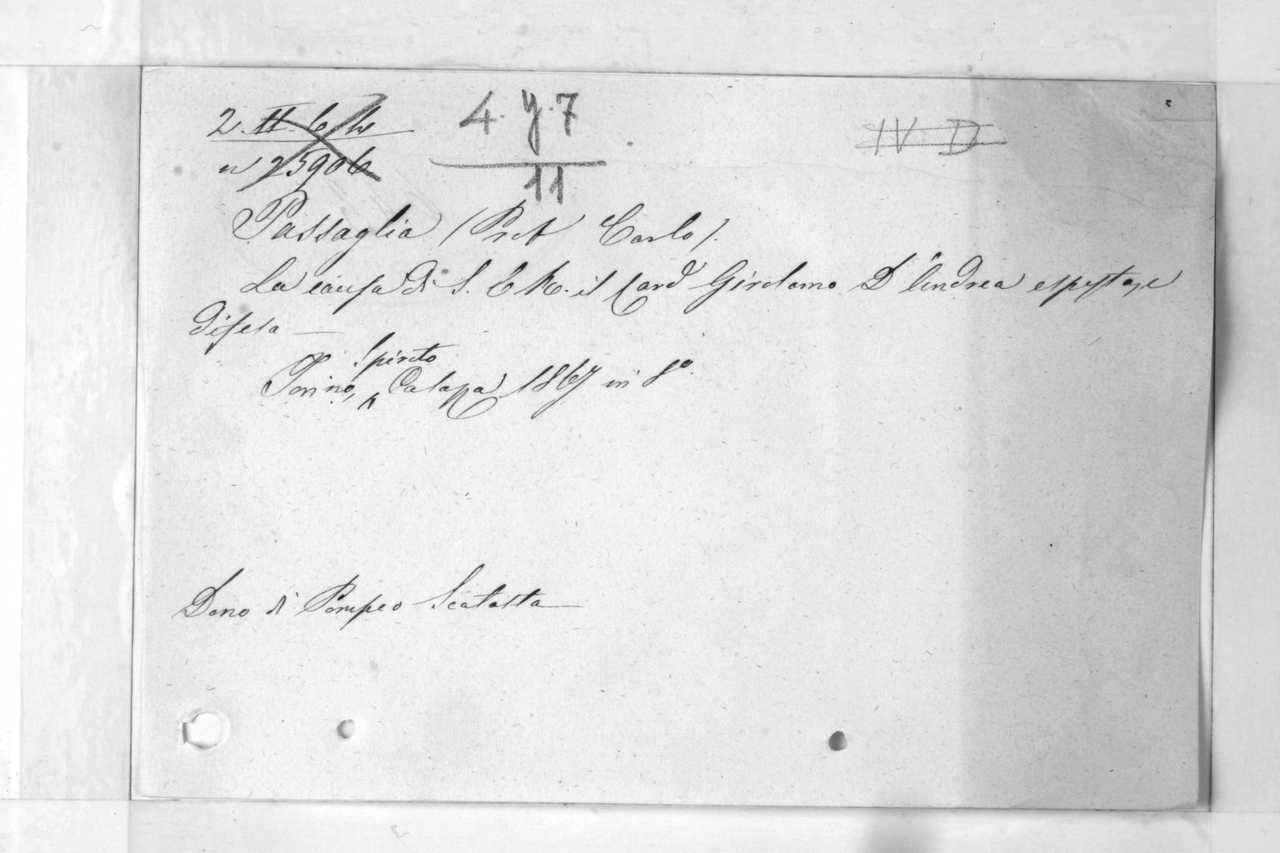 2. II. 6 4 4. Y. 7 IV D
n 25906 11
Passaglia (Prof Carlo).
La causa di S. E R. il Card Girolamo D'Andrea esposta, e
difesa —
Spirito
Torino, Calazza 1867 in 8º
Dono di Pompeo Scatassa